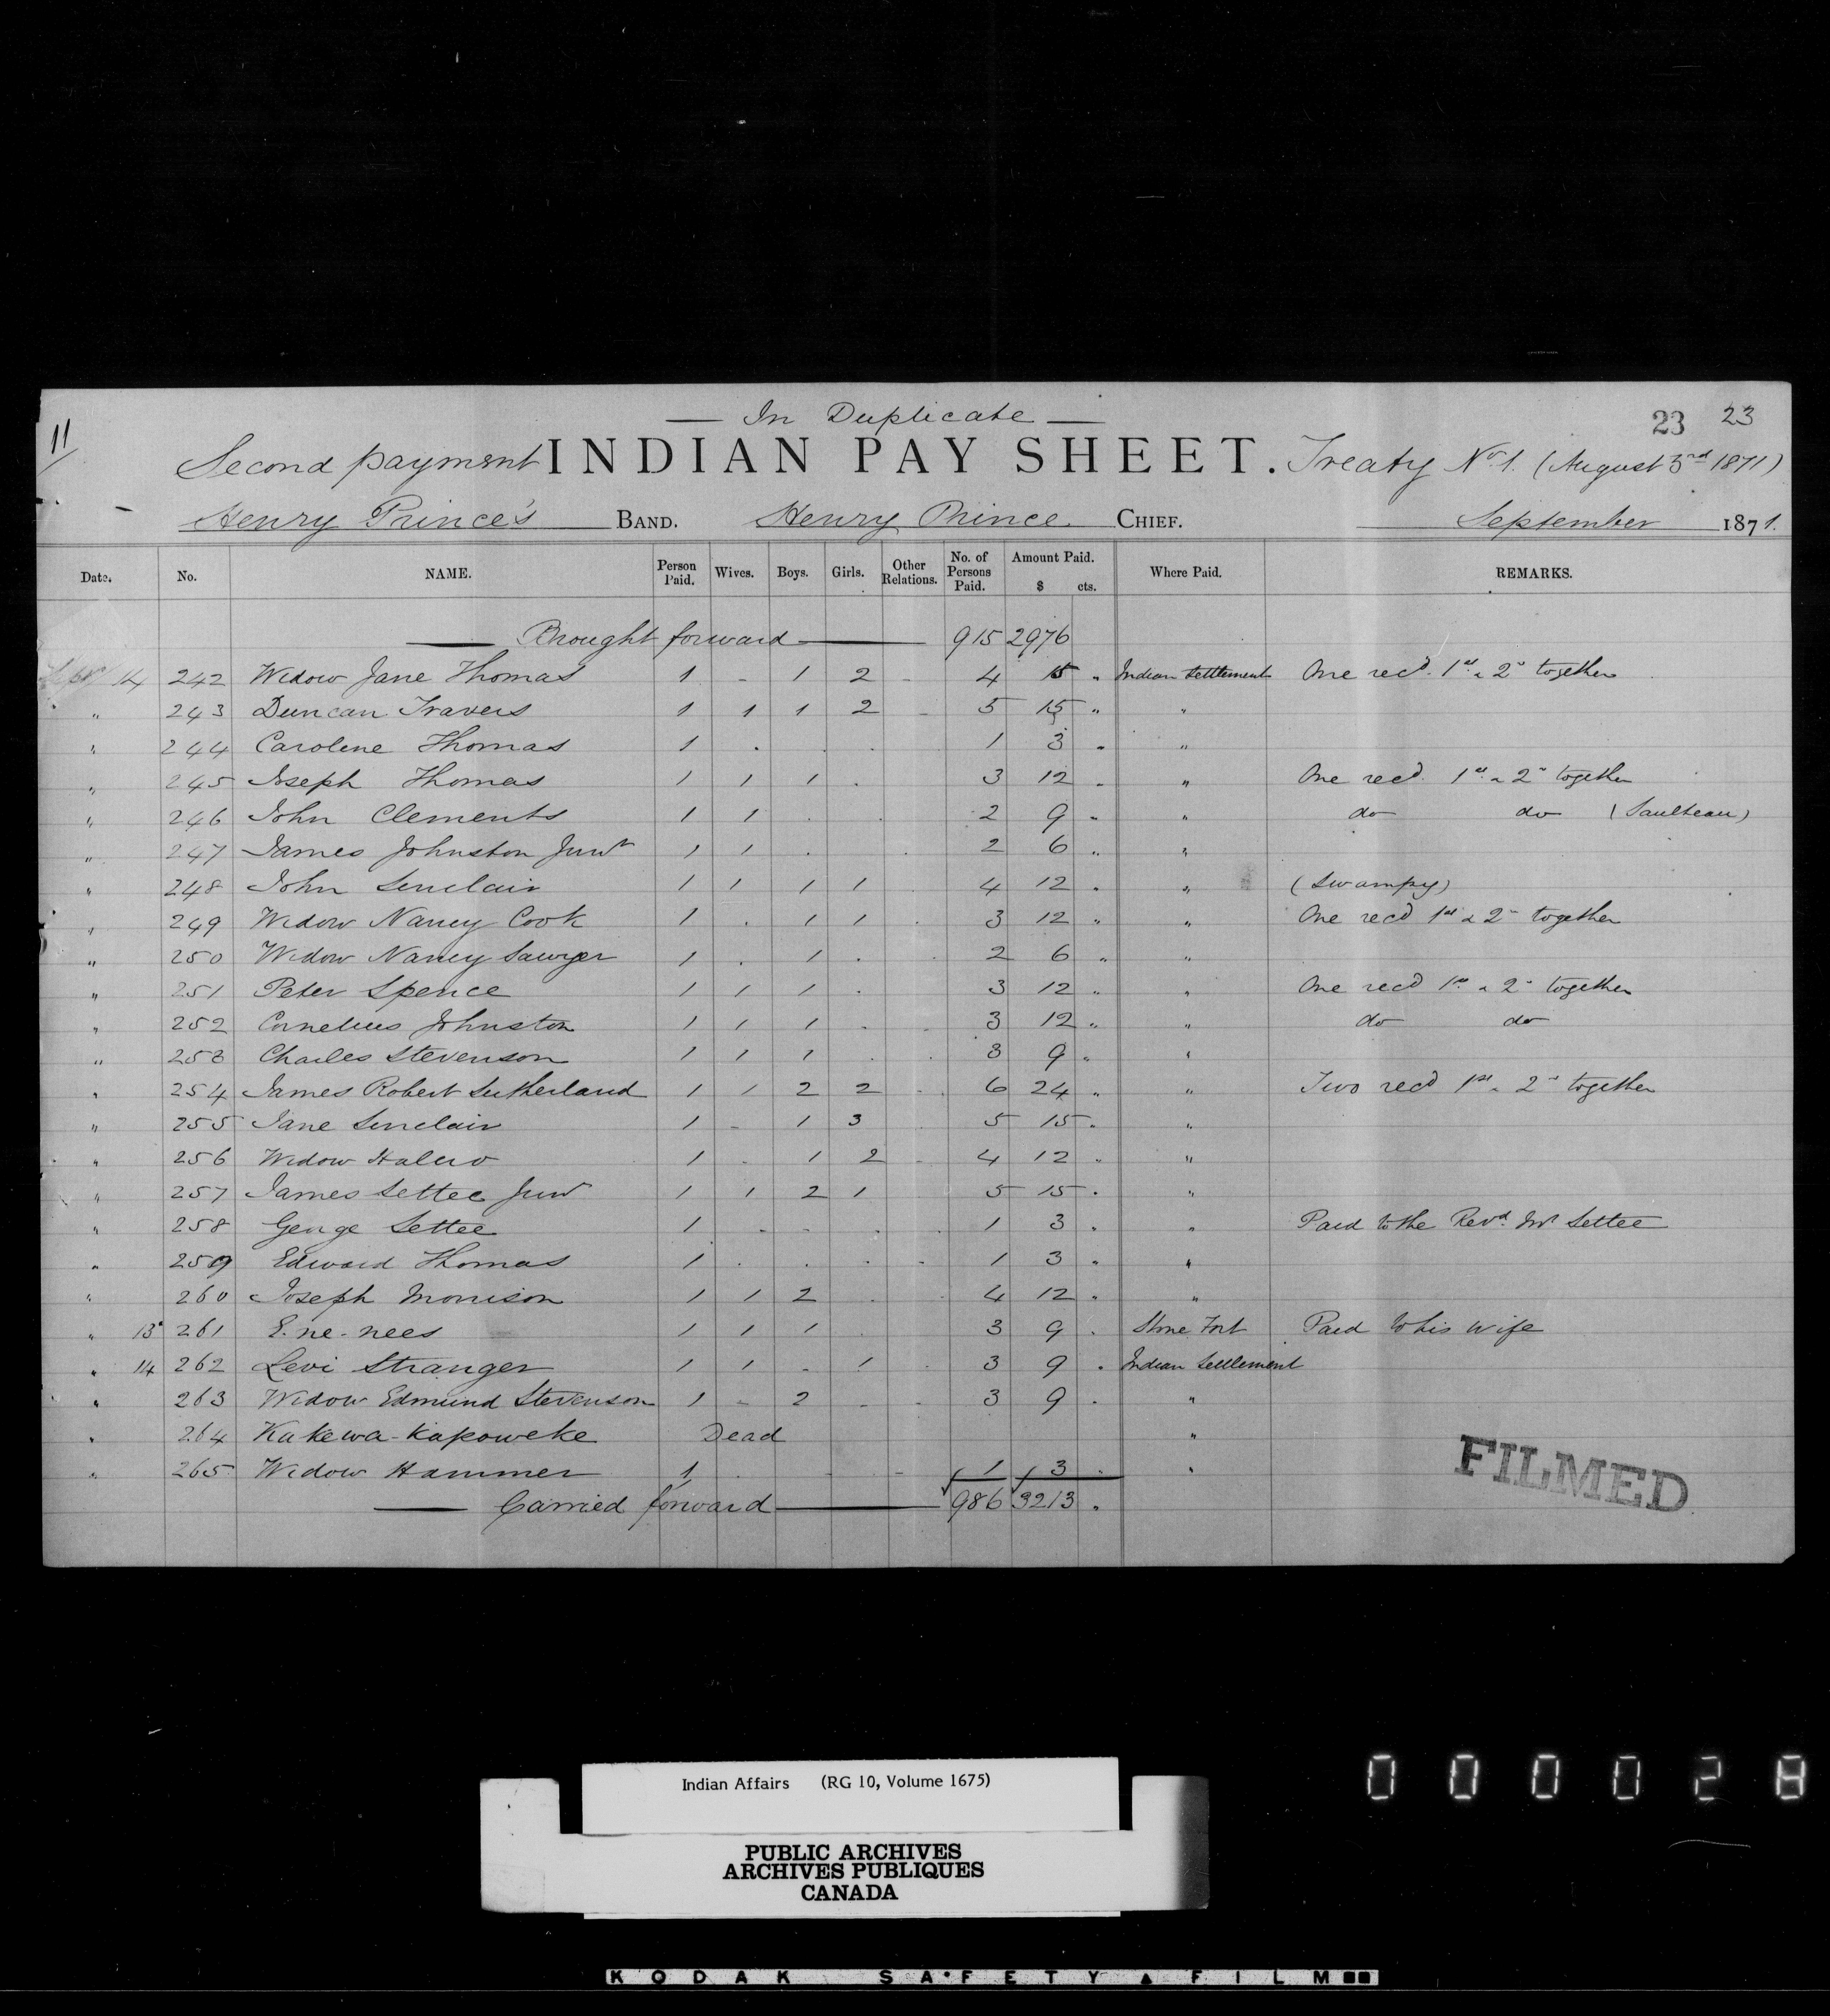 — In Duplicate —
11
23 23
Second payment INDIAN PAY SHEET. Treaty No. 1. (August 3rd 1871)
Henry Prince's BAND. Henry Prince CHIEF. September 1871.
Date. No. NAME. Person Paid. Wives. Boys. Girls. Other Relations. No. of Persons Paid. Amount Paid. $ cts. Where Paid. REMARKS.
— Brought forward — 915 2976
Sepr 14 242 Widow Jane Thomas 1 - 1 2 - 4 15 " Indian Settlement One recd. 1st & 2d together
" 243 Duncan Travers 1 1 1 2 - 5 15 " "
" 244 Caroline Thomas 1 . . . 1 3 " "
" 245 Joseph Thomas 1 1 1 . 3 12 " " One recd. 1st & 2d together
" 246 John Clements 1 1 . . 2 9 " " do do (Saulteau)
" 247 James Johnston Junr 1 1 . . 2 6 " "
" 248 John Sinclair 1 1 1 1 . 4 12 " " (Swampy)
" 249 Widow Nancy Cook 1 . 1 1 . 3 12 " " One recd 1st & 2d together
" 250 Widow Nancy Sawyer 1 . 1 . . 2 6 " "
" 251 Peter Spence 1 1 1 . 3 12 " " One recd 1st & 2d together
" 252 Cornelius Johnston 1 1 1 . . 3 12 " " do do
" 253 Charles Stevenson 1 1 1 . . 3 9 " "
" 254 James Robert Sutherland 1 1 2 2 . 6 24 " " Two recd 1st & 2d together
" 255 Jane Sinclair 1 - 1 3 5 15 " "
" 256 Widow Halcro 1 - 1 2 - 4 12 " "
" 257 James Settee Junr 1 1 2 1 5 15 " "
" 258 George Settee 1 - - . . 1 3 " " Paid to the Revd. Mr Settee
" 259 Edward Thomas 1 . . . - 1 3 " "
" 260 Joseph Morrison 1 1 2 . 4 12 " "
" 13 261 E-ne-nees 1 1 1 . 3 9 . Stone Fort Paid to his wife
" 14 262 Levi Stranger 1 1 - 1 . 3 9 . Indian Settlement
" 263 Widow Edmund Stevenson 1 - 2 - - 3 9 . "
" 264 Kakewa-kapoweke Dead "
" 265 Widow Hammer 1 . - - 1 3 . "
— Carried forward — 986 3213 "
FILMED
Indian Affairs (RG 10, Volume 1675)
PUBLIC ARCHIVES
ARCHIVES PUBLIQUES
CANADA
000028
KODAK SAFETY FILM